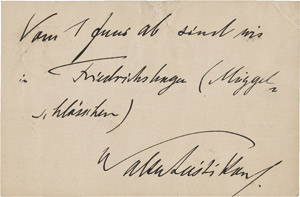 Vom 1 Juni ab sind wir
in Friedrichshagen (Müggel-
schlösschen)
Walter Leistikow.